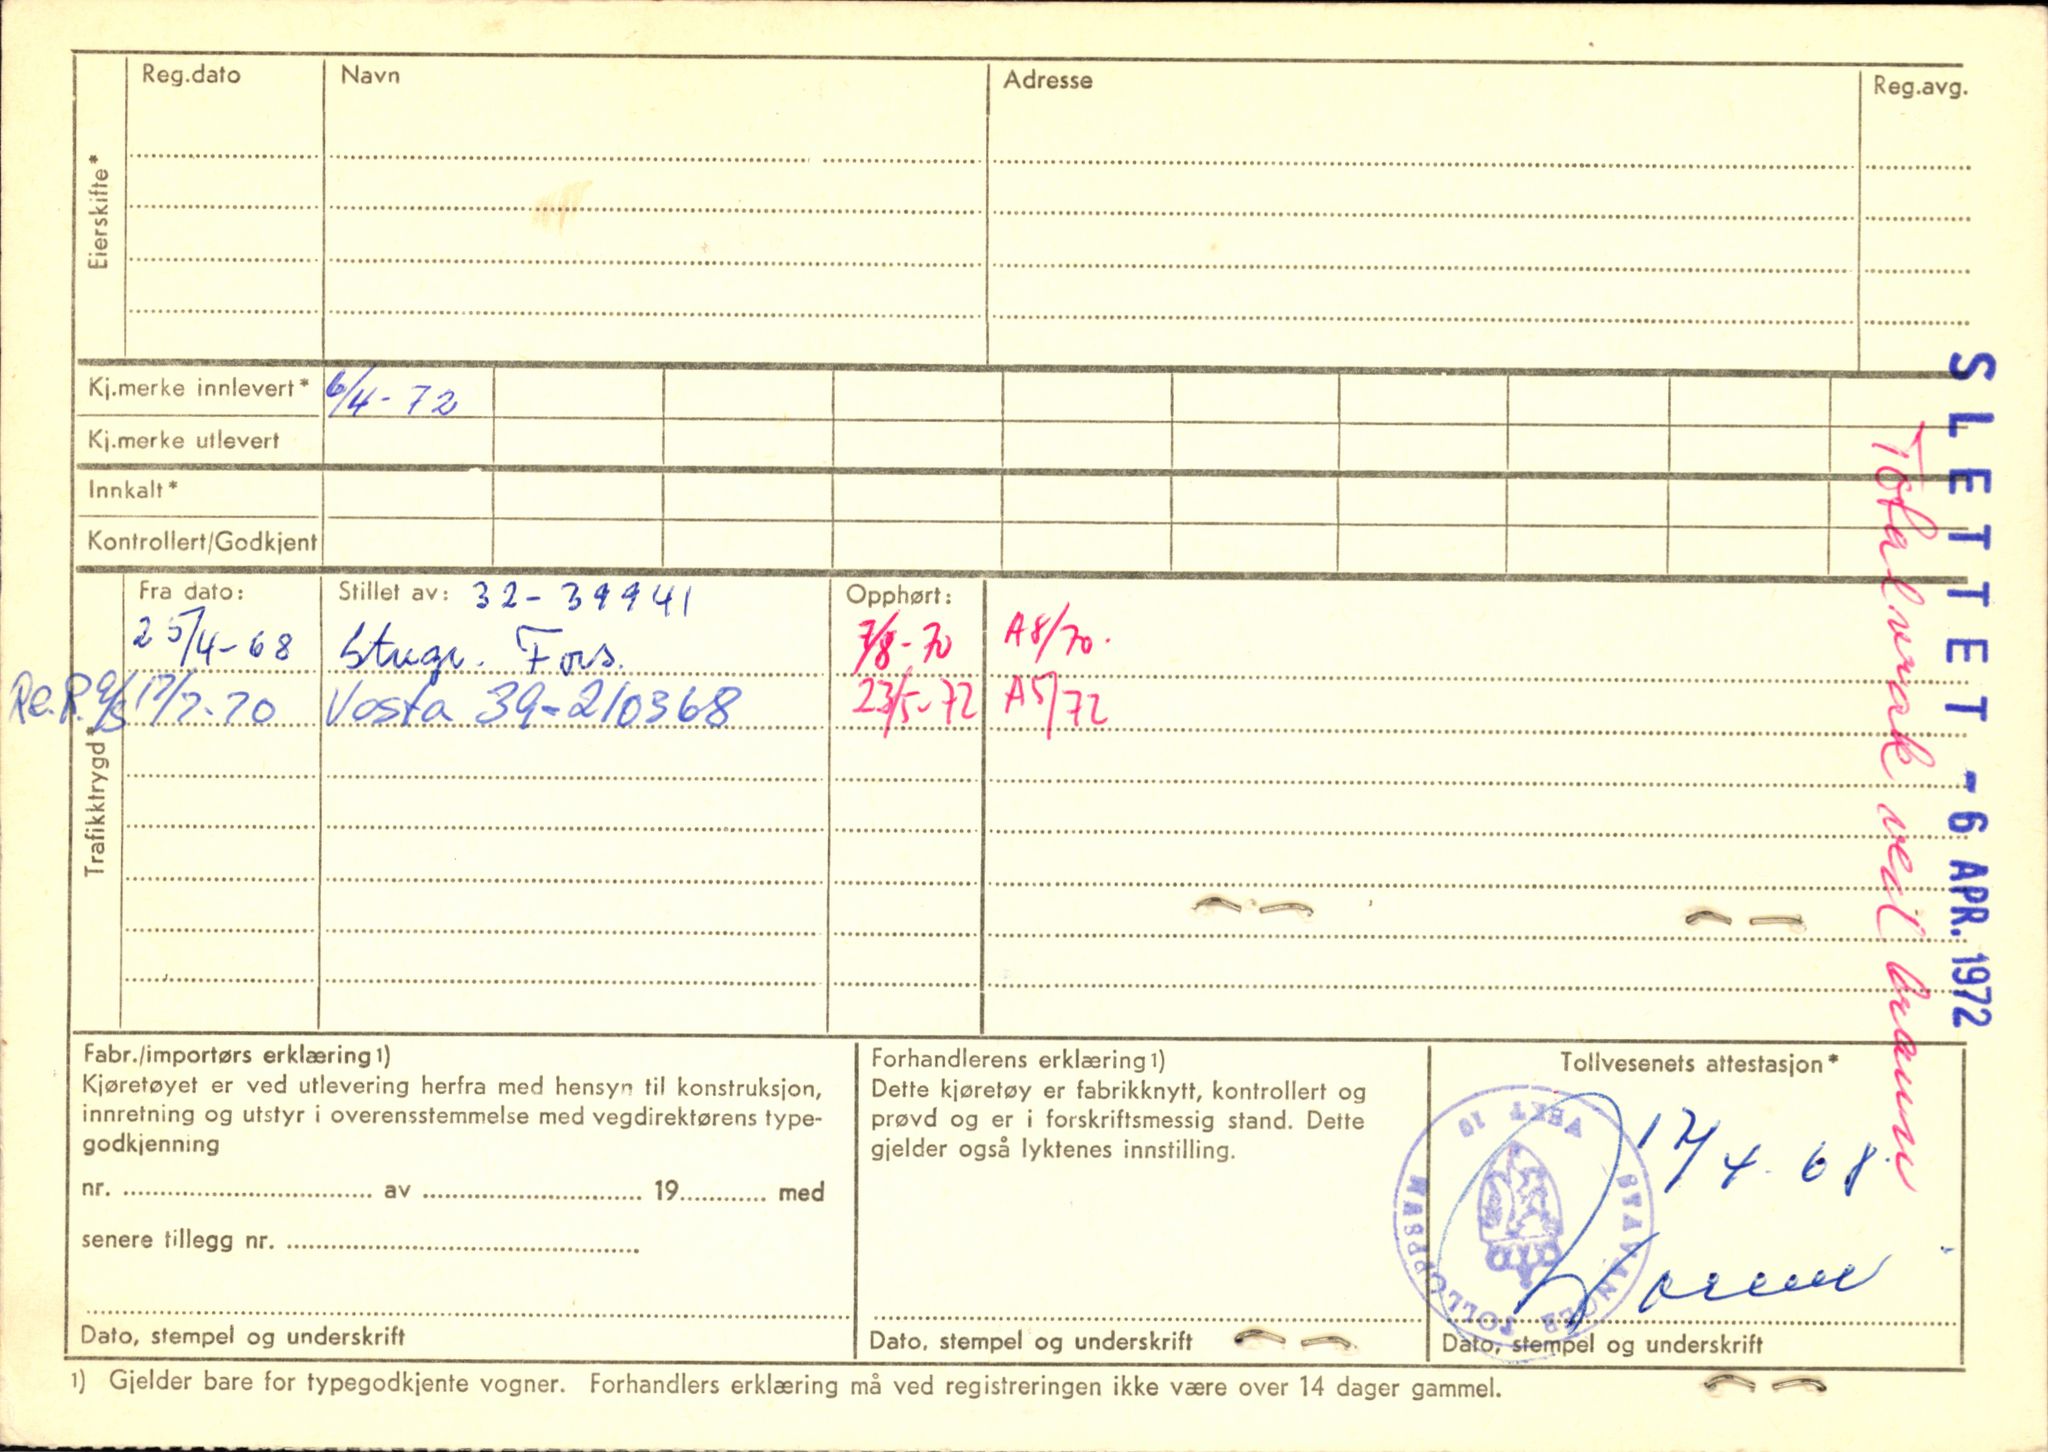 Reg.dato Navn Adresse Reg.avg.
Eierskifte*
Kj.merke innlevert* 6/4-72
Kj.merke utlevert
Innkalt*
Kontrollert/Godkjent
Trafikktrygd*
Fra dato: Stillet av: 32-39941 Opphørt:
25/4-68 Stugr. Fors. 7/8-70 A8/70.
Re.P. 9/5 17/7-70 Vesta 39-210368 23/5-72 A5/72
SLETTET -6 APR. 1972
Totalvrak ved brann
Fabr./importørs erklæring1)
Kjøretøyet er ved utlevering herfra med hensyn til konstruksjon,
innretning og utstyr i overensstemmelse med vegdirektørens type-
godkjenning
nr. av 19 med
senere tillegg nr.
Dato, stempel og underskrift
Forhandlerens erklæring1)
Dette kjøretøy er fabrikknytt, kontrollert og
prøvd og er i forskriftsmessig stand. Dette
gjelder også lyktenes innstilling.
Dato, stempel og underskrift
Tollvesenets attestasjon*
17/4-68
STAVANGER TOLLOPPSYN
Dato, stempel og underskrift
1) Gjelder bare for typegodkjente vogner. Forhandlers erklæring må ved registreringen ikke være over 14 dager gammel.